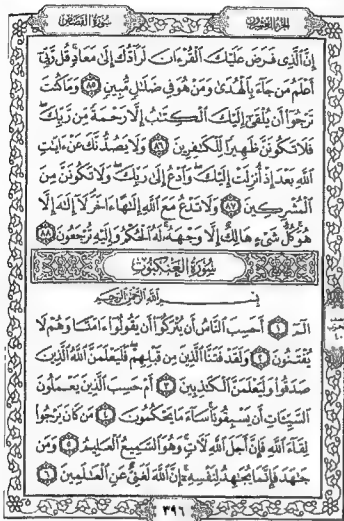 سورة القصص
الجزء العشرون
إِنَّ ٱلَّذِى فَرَضَ عَلَيْكَ ٱلْقُرْءَانَ لَرَآدُّكَ إِلَىٰ مَعَادٍ قُل رَّبِّىٓ
أَعْلَمُ مَن جَآءَ بِٱلْهُدَىٰ وَمَنْ هُوَ فِى ضَلَٰلٍ مُّبِينٍ ٨٥ وَمَا كُنتَ
تَرْجُوٓا۟ أَن يُلْقَىٰٓ إِلَيْكَ ٱلْكِتَٰبُ إِلَّا رَحْمَةً مِّن رَّبِّكَ
فَلَا تَكُونَنَّ ظَهِيرًا لِّلْكَٰفِرِينَ ٨٦ وَلَا يَصُدُّنَّكَ عَنْ ءَايَٰتِ
ٱللَّهِ بَعْدَ إِذْ أُنزِلَتْ إِلَيْكَ وَٱدْعُ إِلَىٰ رَبِّكَ وَلَا تَكُونَنَّ مِنَ
ٱلْمُشْرِكِينَ ٨٧ وَلَا تَدْعُ مَعَ ٱللَّهِ إِلَٰهًا ءَاخَرَ لَآ إِلَٰهَ إِلَّا
هُوَ كُلُّ شَىْءٍ هَالِكٌ إِلَّا وَجْهَهُۥ لَهُ ٱلْحُكْمُ وَإِلَيْهِ تُرْجَعُونَ ٨٨
سورة العنكبوت
بِسْمِ ٱللَّهِ ٱلرَّحْمَٰنِ ٱلرَّحِيمِ
الٓمٓ ١ أَحَسِبَ ٱلنَّاسُ أَن يُتْرَكُوٓا۟ أَن يَقُولُوٓا۟ ءَامَنَّا وَهُمْ لَا
يُفْتَنُونَ ٢ وَلَقَدْ فَتَنَّا ٱلَّذِينَ مِن قَبْلِهِمْ فَلَيَعْلَمَنَّ ٱللَّهُ ٱلَّذِينَ
صَدَقُوا۟ وَلَيَعْلَمَنَّ ٱلْكَٰذِبِينَ ٣ أَمْ حَسِبَ ٱلَّذِينَ يَعْمَلُونَ
ٱلسَّيِّـَٔاتِ أَن يَسْبِقُونَا سَآءَ مَا يَحْكُمُونَ ٤ مَن كَانَ يَرْجُوا۟
لِقَآءَ ٱللَّهِ فَإِنَّ أَجَلَ ٱللَّهِ لَـَٔاتٍ وَهُوَ ٱلسَّمِيعُ ٱلْعَلِيمُ ٥ وَمَن
جَٰهَدَ فَإِنَّمَا يُجَٰهِدُ لِنَفْسِهِۦٓ إِنَّ ٱللَّهَ لَغَنِىٌّ عَنِ ٱلْعَٰلَمِينَ ٦
٣٩٦